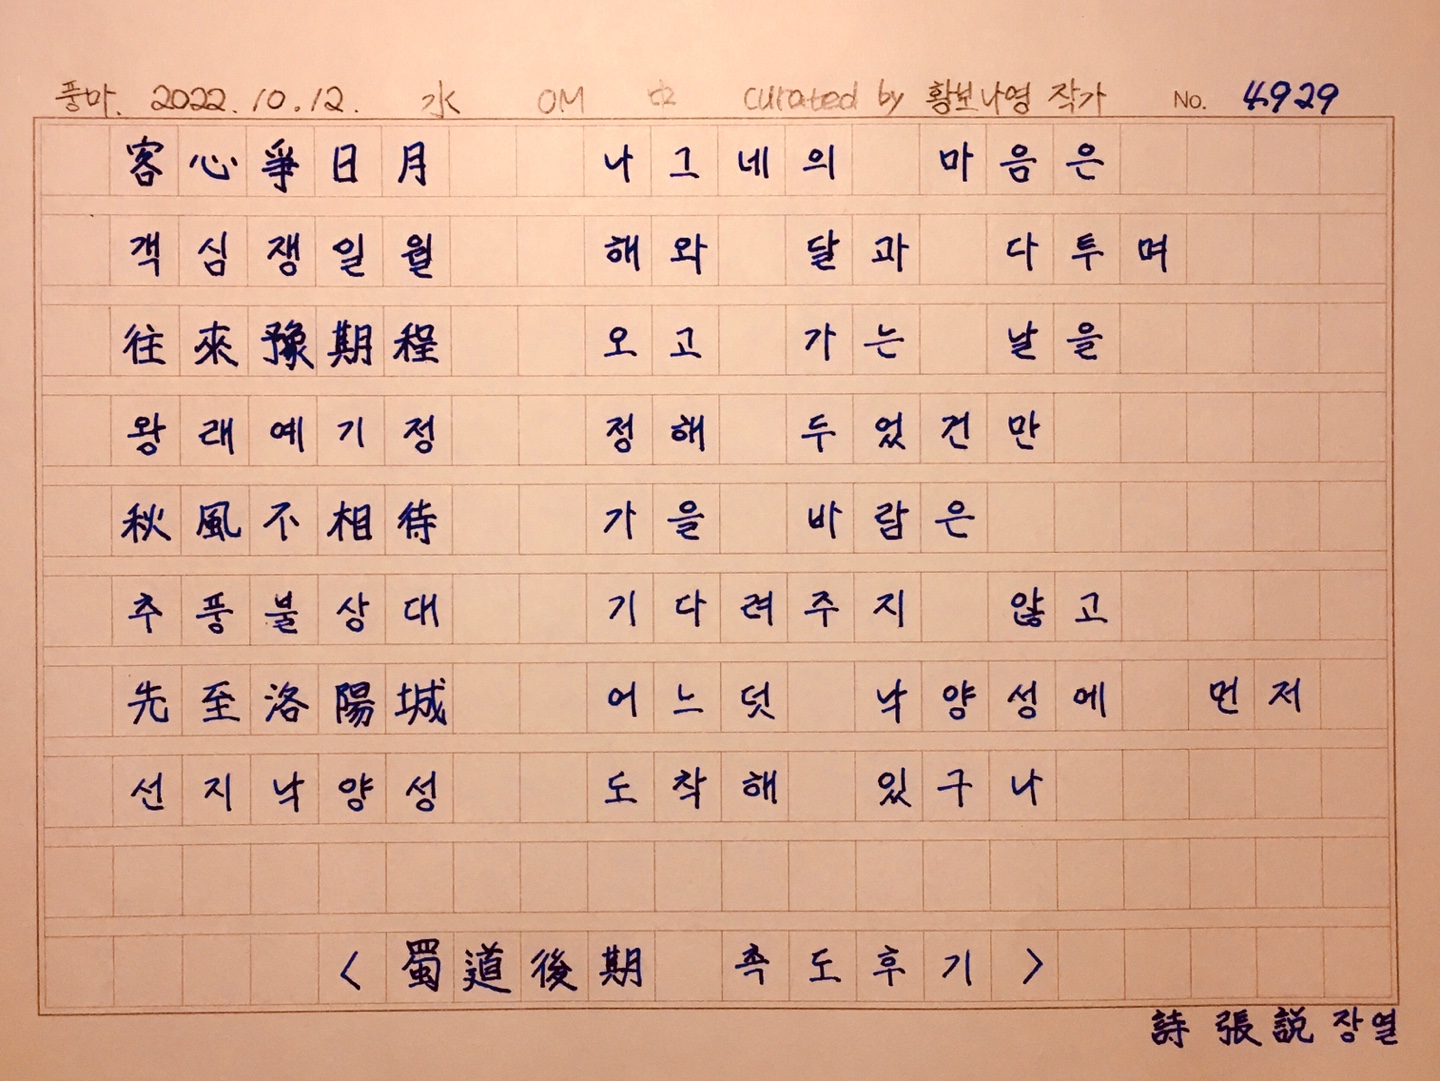 풍마. 2022.10.12. 水 OM curated by 황보나영 작가 No. 4929
客心爭日月 나그네의 마음은
객심쟁일월 해와 달과 다투며
往來豫期程 오고 가는 날을
왕래예기정 정해 두었건만
秋風不相待 가을 바람은
추풍불상대 기다려주지 않고
先至洛陽城 어느덧 낙양성에 먼저
선지낙양성 도착해 있구나
< 蜀道後期 촉도후기 >
詩 張説 장열